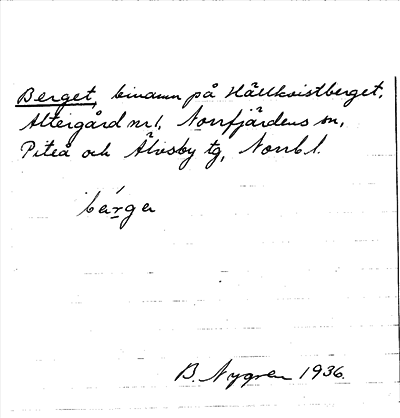 Berget, binamn på Hällkvistberget,
Altergård nr 1, Norrfjärdens sn,
Piteå och Älvsby tg, Norrb. l.
bærga
B. Nygren 1936.